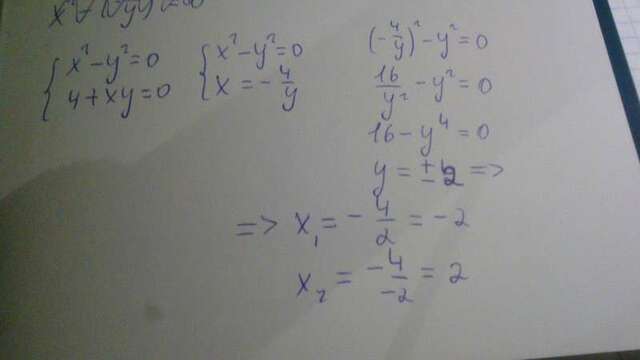 { x² - y² = 0
4 + xy = 0
{ x² - y² = 0
x = - 4/y
(- 4/y)² - y² = 0
16/y² - y² = 0
16 - y⁴ = 0
y = ±2 =>
=> x₁ = - 4/2 = -2
x₂ = -4/-2 = 2